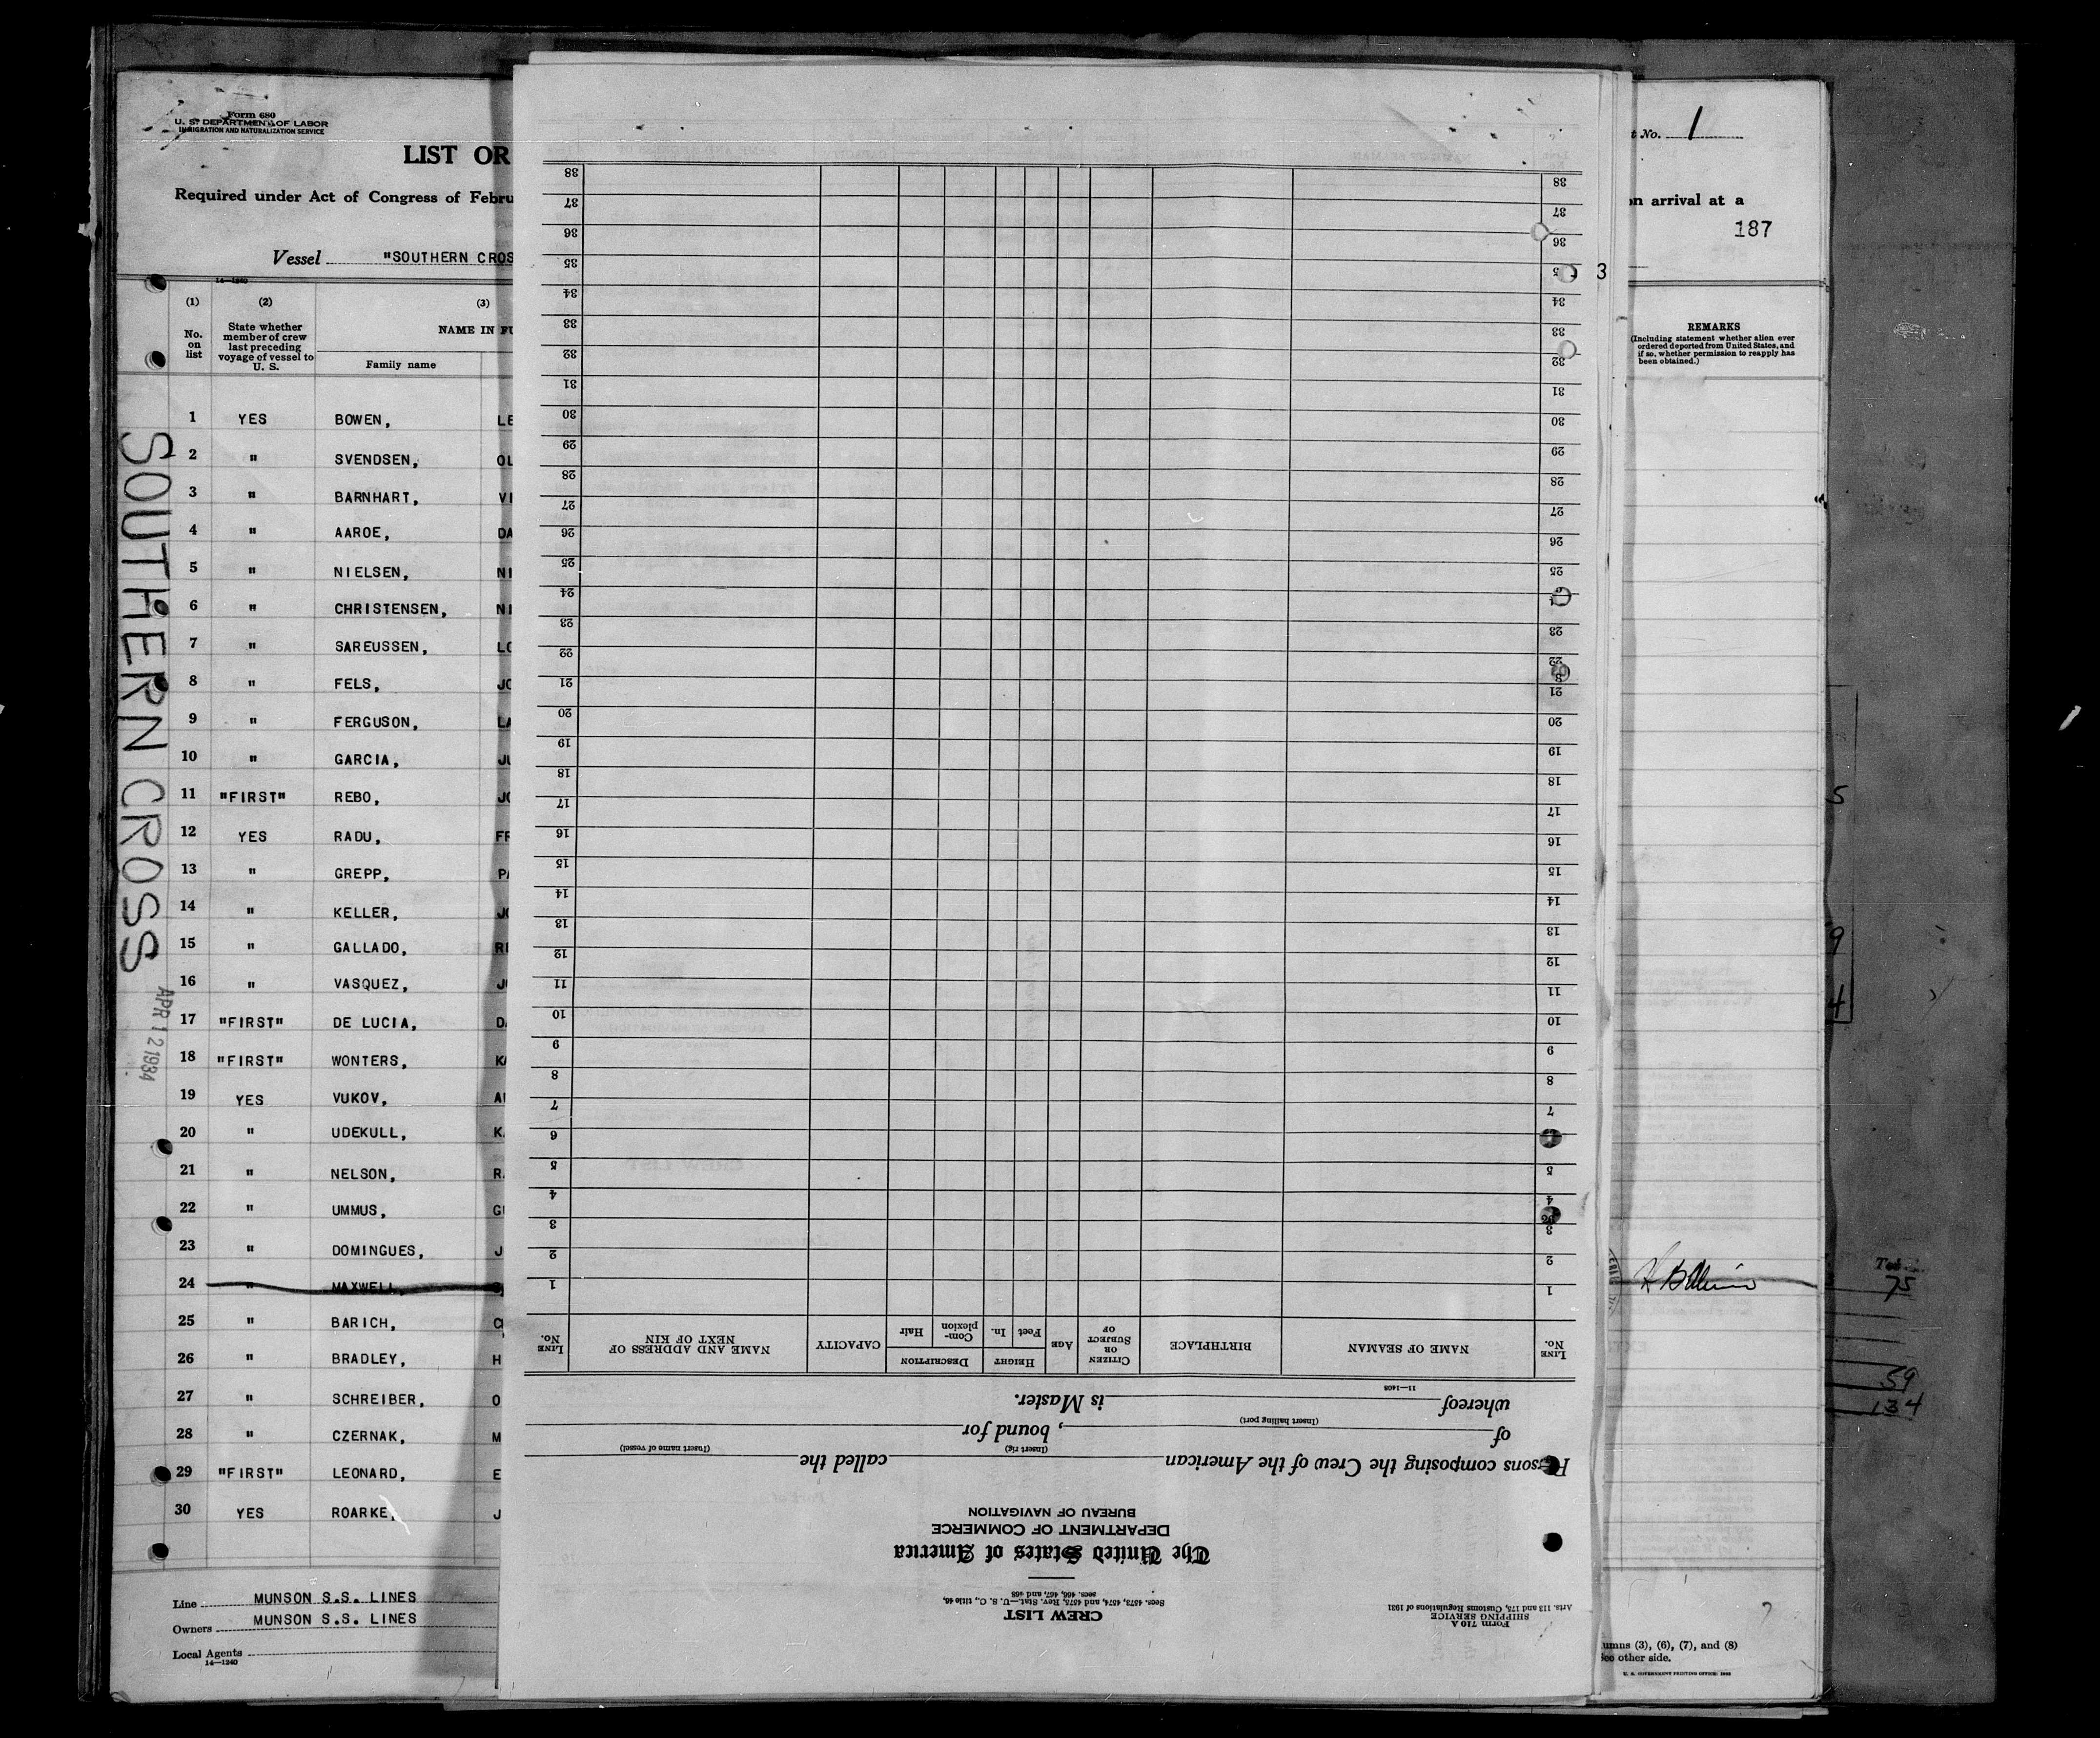 Form 680
U. S. DEPARTMENT OF LABOR
IMMIGRATION AND NATURALIZATION SERVICE
LIST OR
Required under Act of Congress of Febru
Vessel "SOUTHERN CROS
14—1240
(1) (2) (3)
No. on list
State whether member of crew last preceding voyage of vessel to U. S.
NAME IN FU
Family name
1 YES BOWEN, LE
2 " SVENDSEN, OL
3 " BARNHART, VI
4 " AAROE, DA
5 " NIELSEN, NI
6 " CHRISTENSEN, NI
7 " SAREUSSEN, LO
8 " FELS, JO
9 " FERGUSON, LA
10 " GARCIA, JU
11 "FIRST" REBO, JO
12 YES RADU, FR
13 " GREPP, PA
14 " KELLER, JO
15 " GALLADO, RE
16 " VASQUEZ, J
17 "FIRST" DE LUCIA, D
18 "FIRST" WONTERS, KA
19 YES VUKOV, A
20 " UDEKULL, K
21 " NELSON, R
22 " UMMUS, G
23 " DOMINGUES, J
24 " MAXWELL,
25 " BARICH, C
26 " BRADLEY, H
27 " SCHREIBER, O
28 " CZERNAK, M
29 "FIRST" LEONARD, E
30 YES ROARKE, J
Line MUNSON S.S. LINES
Owners MUNSON S.S. LINES
Local Agents
14—1240
SOUTHERN CROSS
APR 12 1934
Form 710 A
SHIPPING SERVICE
Arts. 113 and 175, Customs Regulations of 1931
CREW LIST
Secs. 4573, 4574, and 4575, Rev. Stat.—U. S. C., title 46,
secs. 466, 467, and 468
The United States of America
DEPARTMENT OF COMMERCE
BUREAU OF NAVIGATION
Persons composing the Crew of the American called the
(Insert rig) (Insert name of vessel)
of , bound for
(Insert hailing port)
whereof is Master.
11—1408
LINE No.
NAME OF SEAMAN
BIRTHPLACE
CITIZEN OR SUBJECT OF
AGE
HEIGHT
Feet In.
DESCRIPTION
Complexion Hair
CAPACITY
NAME AND ADDRESS OF NEXT OF KIN
LINE No.
1 1
2 2
3 3
4 4
5 5
6
7 7
8 8
9 9
10 10
11 11
12 12
13 13
14 14
15 15
16 16
17 17
18 18
19 19
20 20
21 21
22 22
23 23
24
25 25
26 26
27 27
28 28
29 29
30 30
31 31
32 32
33 33
34 34
35
36 36
37 37
38 38
3
t No. 1
on arrival at a
187
REMARKS
(Including statement whether alien ever ordered deported from United States, and if so, whether permission to reapply has been obtained.)
umns (3), (6), (7), and (8)
See other side.
U. S. GOVERNMENT PRINTING OFFICE
5
9
4
75
59
134